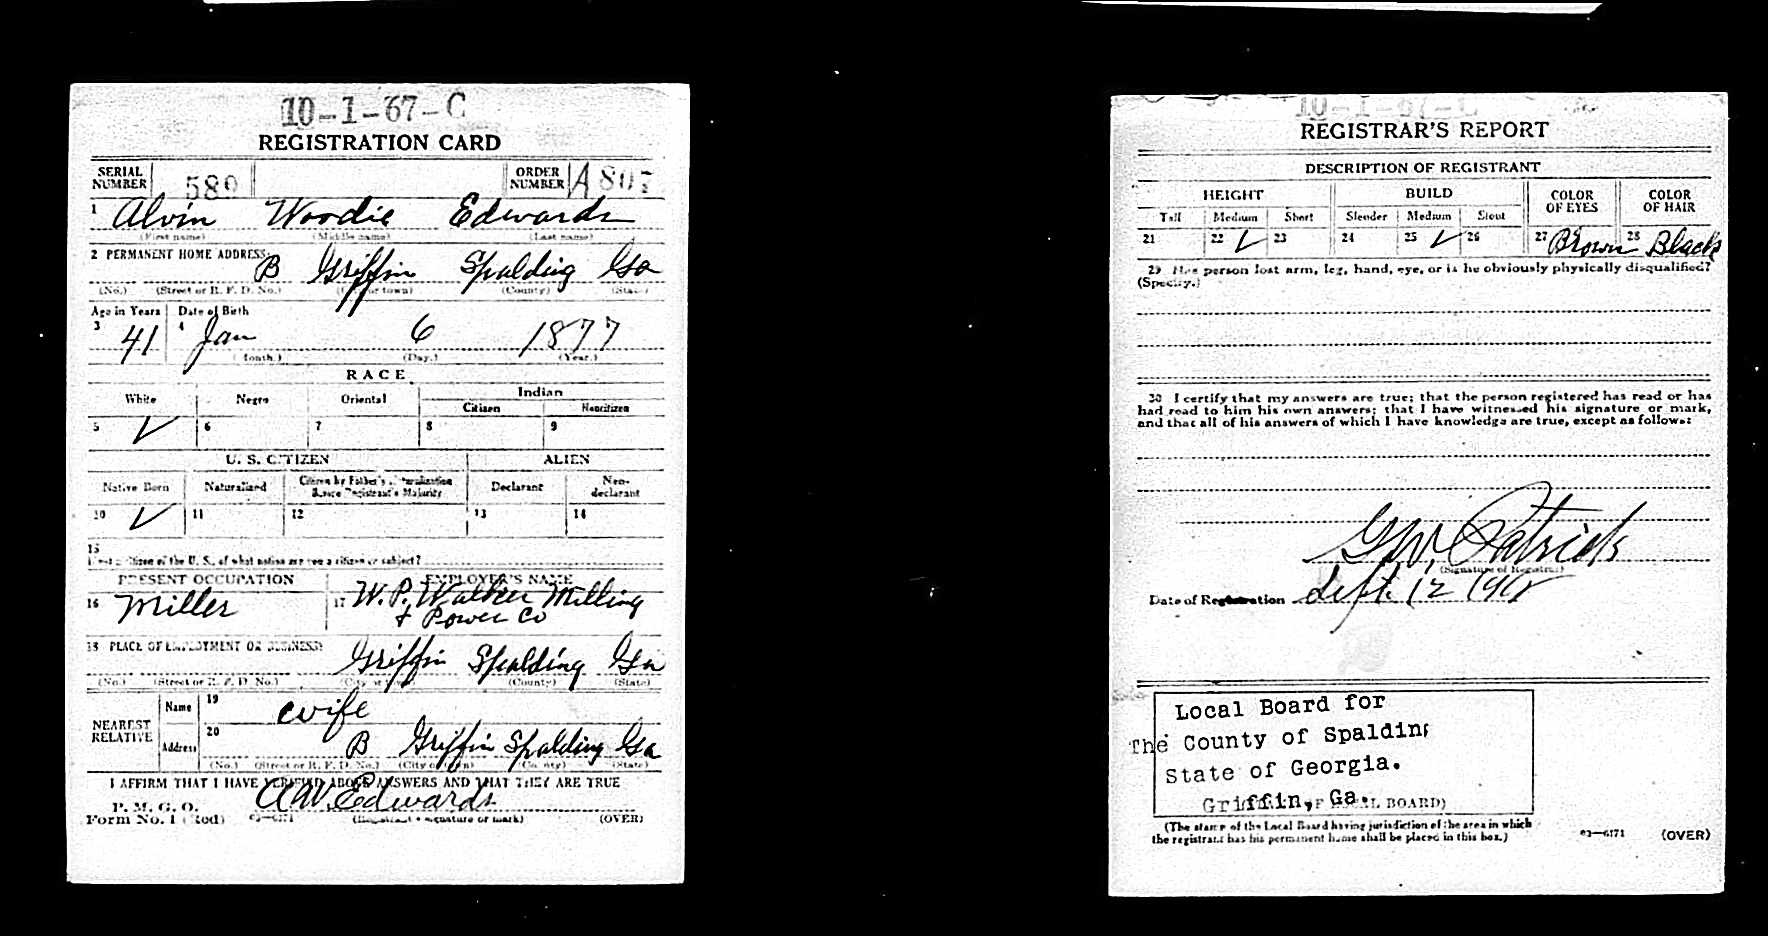 10-1-67-C
REGISTRATION CARD
SERIAL NUMBER 580 ORDER NUMBER A 807
1 Alvin Woodie Edwards
(First name) (Middle name) (Last name)
2 PERMANENT HOME ADDRESS:
B Griffin Spalding Ga
(No.) (Street or R. F. D. No.) (City or town) (County) (State)
Age in Years Date of Birth
3 41 4 Jan 6 1877
(Month.) (Day.) (Year.)
RACE
White Negro Oriental Indian
Citizen Noncitizen
5 ✓ 6 7 8 9
U. S. CITIZEN ALIEN
Native Born Naturalized Citizen by Father's Naturalization Before Registrant's Majority Declarant Non-declarant
10 ✓ 11 12 13 14
15
If not a citizen of the U. S., of what nation are you a citizen or subject?
PRESENT OCCUPATION EMPLOYER'S NAME
16 Miller 17 W. P. Walker Milling
& Power Co
18 PLACE OF EMPLOYMENT OR BUSINESS:
Griffin Spalding Ga
(No.) (Street or R. F. D. No.) (City or town) (County) (State)
NEAREST RELATIVE Name 19 wife
Address 20 B Griffin Spalding Ga
(No.) (Street or R. F. D. No.) (City or town) (County) (State)
I AFFIRM THAT I HAVE VERIFIED ABOVE ANSWERS AND THAT THEY ARE TRUE
P. M. G. O.
Form No. 1 (Red) 03—6171 A W. Edwards
(Registrant's signature or mark) (OVER)
10-1-67-C
REGISTRAR'S REPORT
DESCRIPTION OF REGISTRANT
HEIGHT BUILD COLOR OF EYES COLOR OF HAIR
Tall Medium Short Slender Medium Stout
21 22 ✓ 23 24 25 ✓ 26 27 Brown 28 Black
29 Has person lost arm, leg, hand, eye, or is he obviously physically disqualified?
(Specify.)
30 I certify that my answers are true; that the person registered has read or has
had read to him his own answers; that I have witnessed his signature or mark,
and that all of his answers of which I have knowledge are true, except as follows:
G W. Patrick
(Signature of Registrar)
Date of Registration Sept. 12 1918
Local Board for
The County of Spalding
State of Georgia.
Griffin, Ga.
(STAMP OF LOCAL BOARD)
(The stamp of the Local Board having jurisdiction of the area in which
the registrant has his permanent home shall be placed in this box.)
03—6171 (OVER)